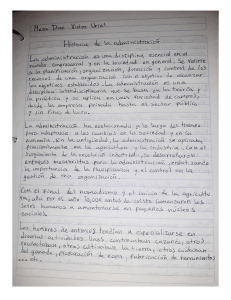 Meza Diaz Victor Uriel
Historia de la administración
La administración es una disciplina esencial en el
mundo empresarial y en la sociedad en general. Se refiere
a la planificación, organización, dirección y control de los
recursos de una organización con el objetivo de alcanzar
los objetivos establecidos. La administración es una
disciplina interdisciplinaria que se basa en la teoría y
la práctica y se aplica en una variedad de campos,
desde la empresa privada hasta el sector público
y sin fines de lucro.
La administración ha evolucionado a lo largo del tiempo
para adaptarse a los cambios en la sociedad y en la
economía. En la antigüedad, la administración se enfocaba
principalmente en la agricultura y la industria. Con el
surgimiento de la revolución industrial, se desarrollaron
enfoques científicos para la administración, enfatizando
la importancia de la planificación y el control en la
gestión de una organización.
Con el final del nomadismo y el inicio de la agricultura
por el año 10,000 antes de cristo comenzaron los
seres humanos a amontonarse en pequeños núcleos
sociales.
Los hombres de entonces tendían a especializarse en
diversas actividades. Unos continuaban cazando, otros
recolectaban, otros cultivaban la tierra, otros cuidaban
del ganado, elaboración de ropa, fabricación de herramientas
... etc.